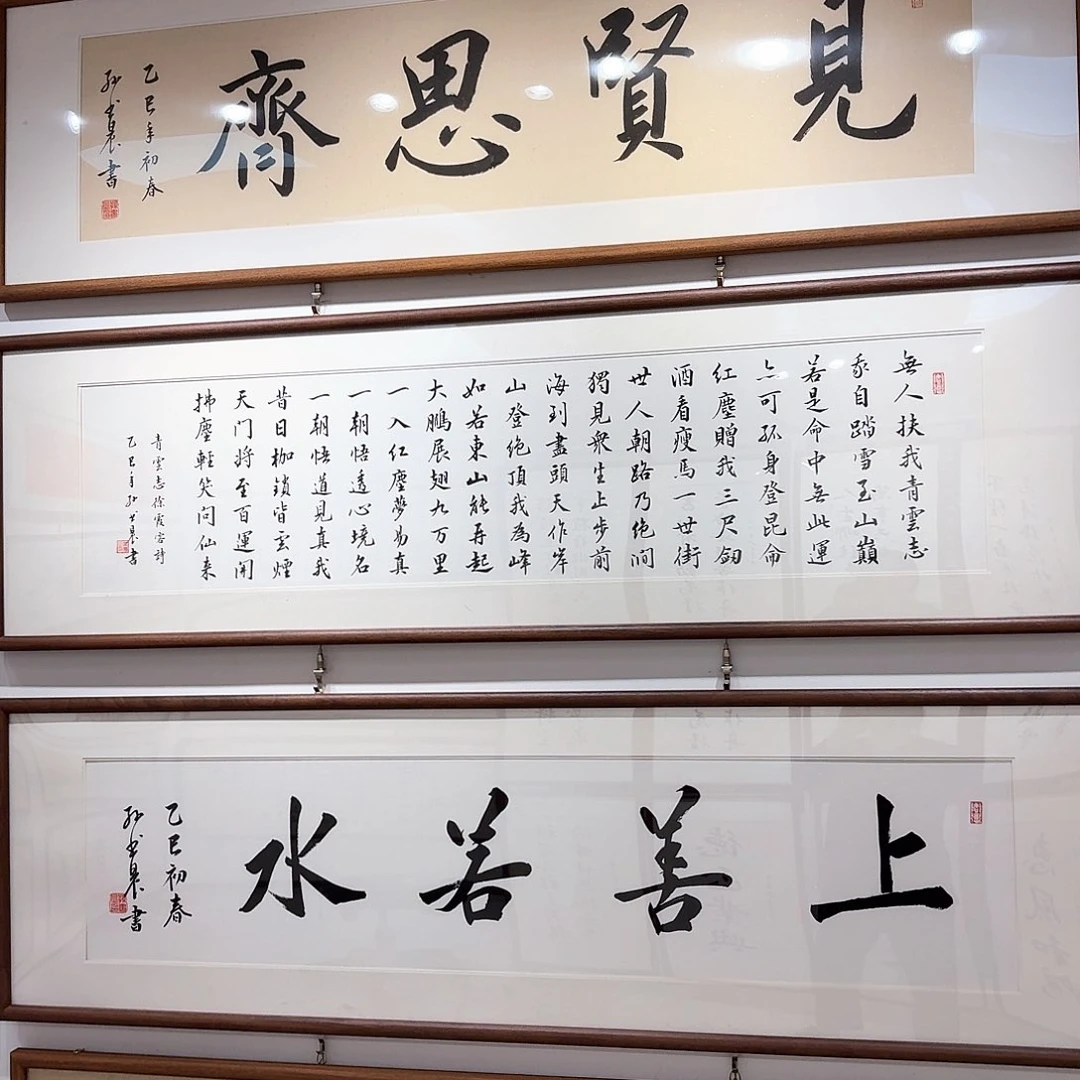 見賢思齊
乙巳年初春
書
無人扶我青雲志
我自踏雪至山巔
若是命中無此運
亦可孤身登昆侖
红塵贈我三尺劒
酒看瘦馬一世街
世人朝路乃绝澗
獨見衆生止步前
海到盡頭天作岸
山登绝頂我為峰
如若東山能再起
大鵬展翅九万里
一入红塵夢易真
一朝悟透心境名
一朝悟道見真我
昔日枷鎖皆雲煙
天门將至百運開
拂塵輕笑问仙来
青雲志徐霞客詩
乙巳年
書
上善若水
乙巳初春
書